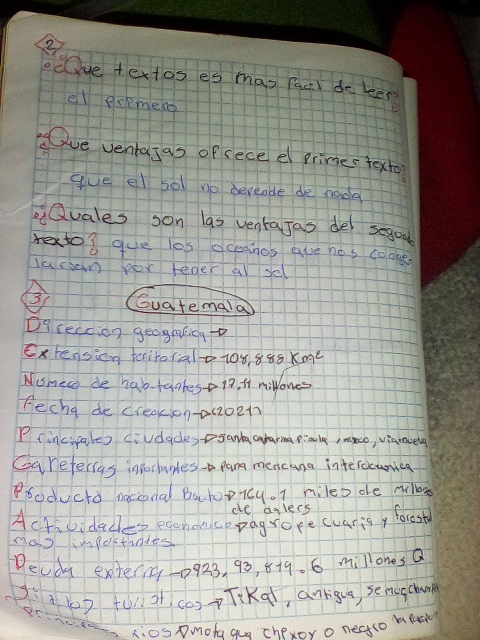 2
¿Que textos es mas facil de leer?
el primero
¿Que ventajas ofrece el primer texto?
que el sol no depende de nada
¿Quales son las ventajas del segundo
texto? que los oceninos que nos conge-
larian por tener al sol
3 Guatemala
Direccion geografica→
Extension teritorial→108,888 Km²
Numero de habitantes→17,11 millones
Fecha de creacion→(2021)
Principales ciudades→santa catarina pinula, mixco, villanueva
Carreterras importantes→panamericana interocianica
Producto nacional Bruto→764.1 miles de millones
de dolers
Actividades economica→agropecuaria y forestal
mas importantes
Deuda externa→923,93,819.6 millones Q
turisticos→TiKal, antigua, semuc champey
rios→motagua chixor o negro